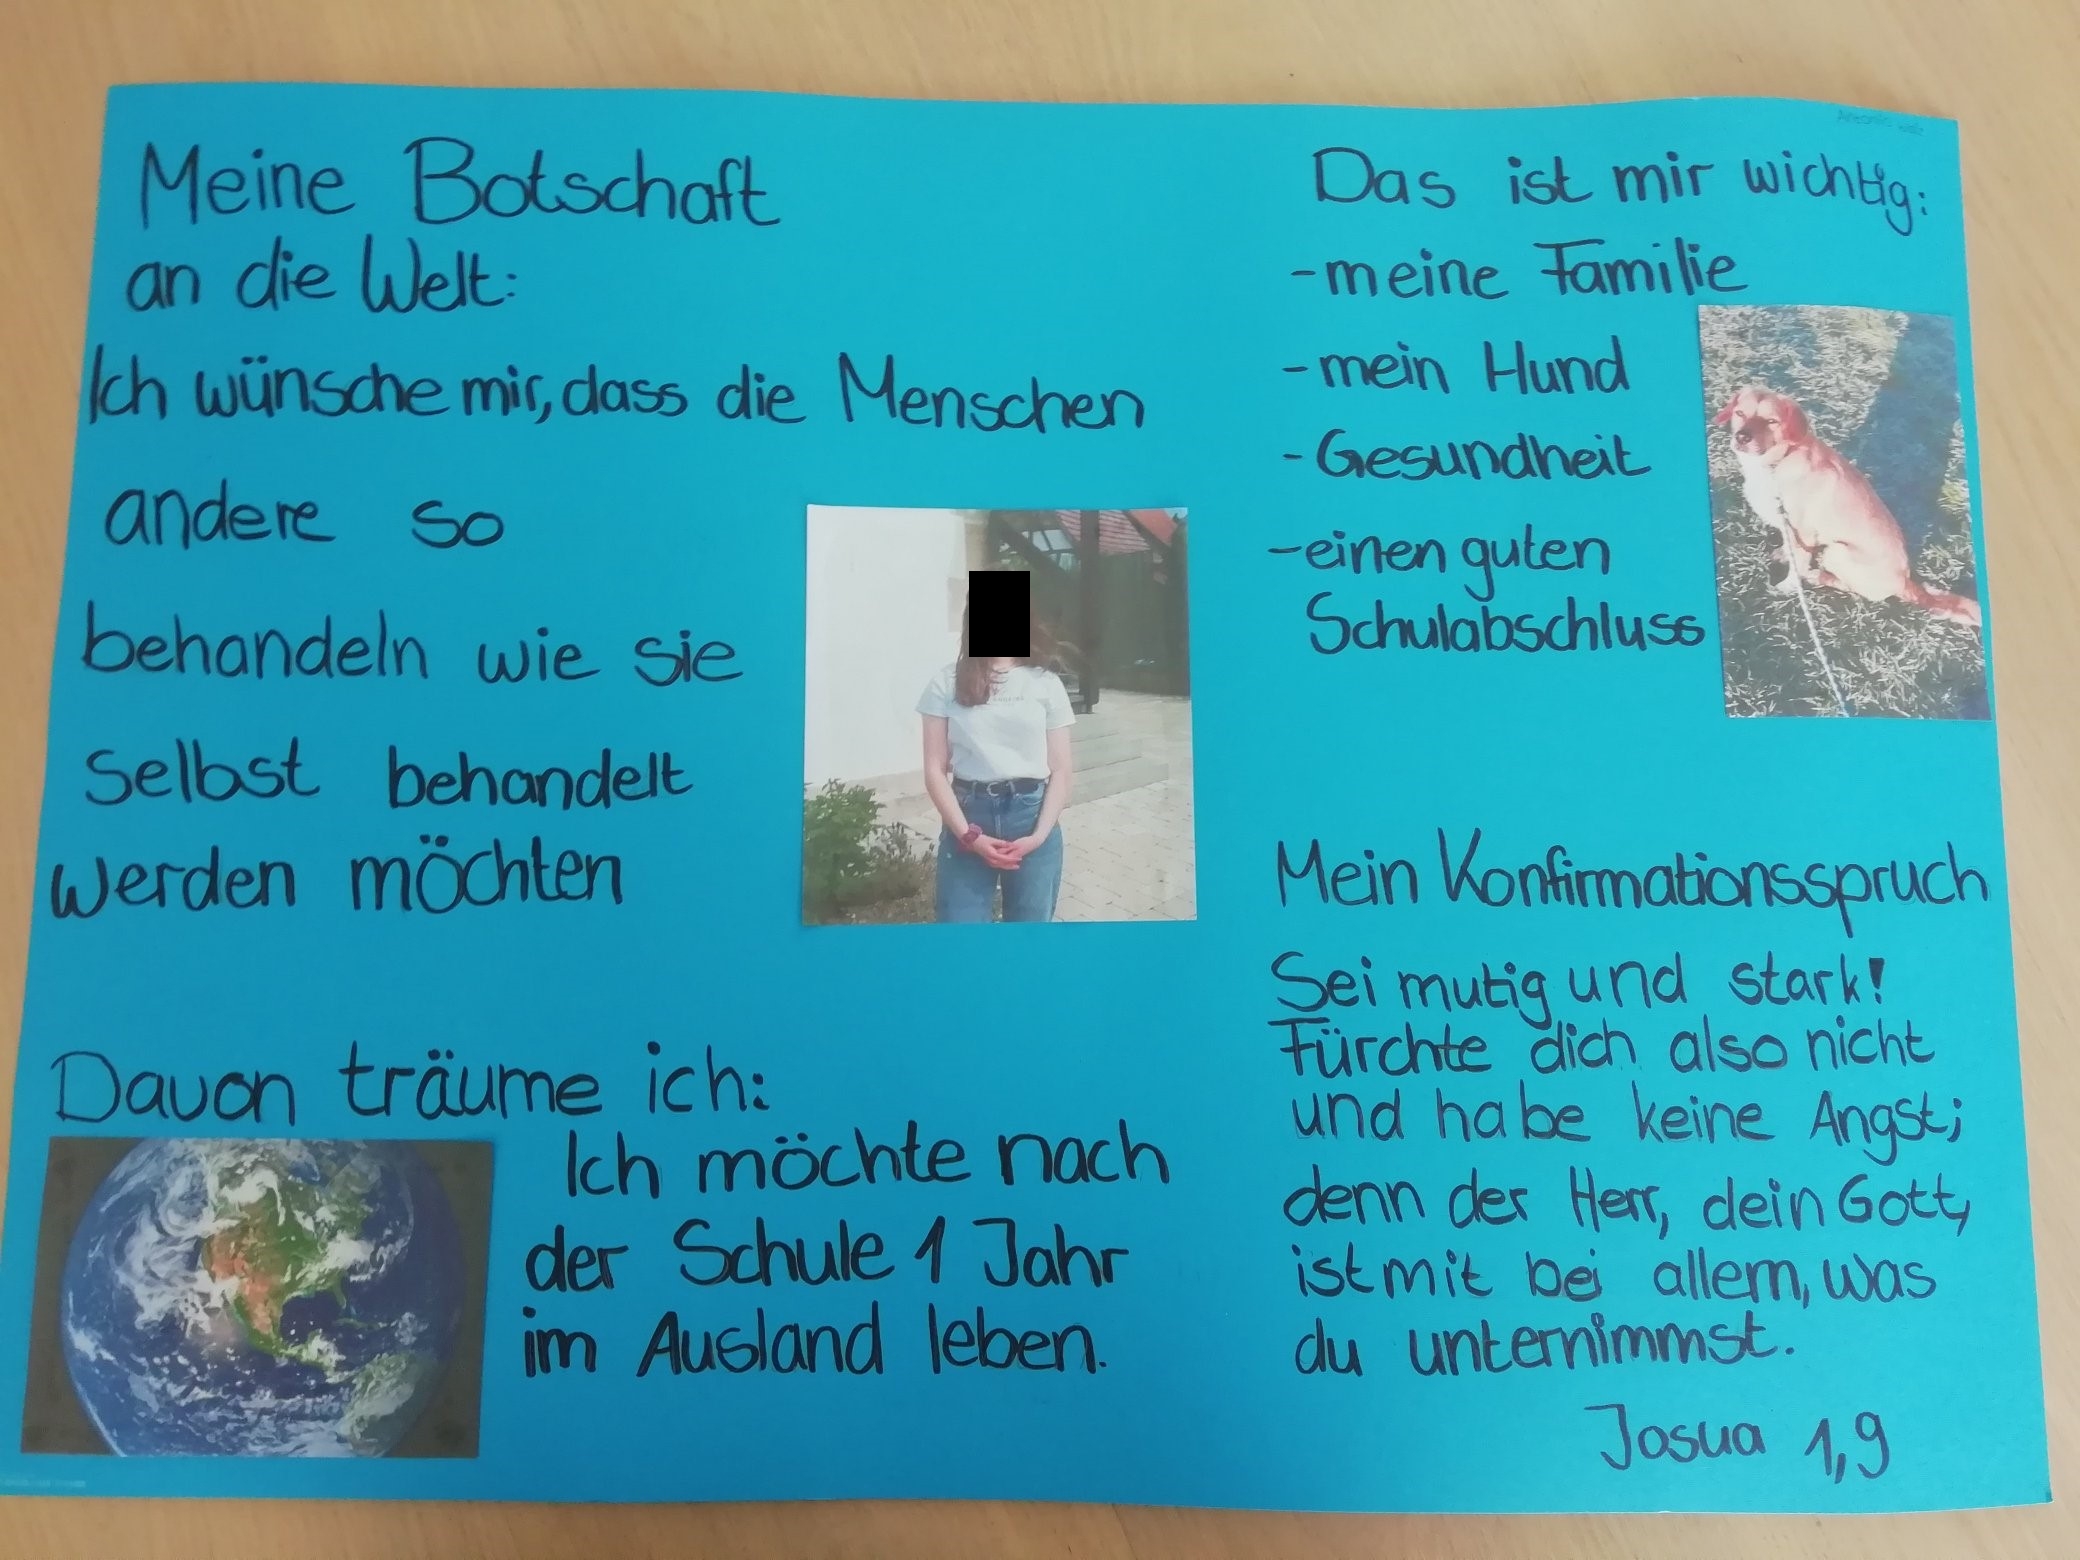 Meine Botschaft
an die Welt:
Ich wünsche mir, dass die Menschen
andere so
behandeln wie sie
selbst behandelt
werden möchten
Davon träume ich:
Ich möchte nach
der Schule 1 Jahr
im Ausland leben.
Das ist mir wichtig:
- meine Familie
- mein Hund
- Gesundheit
- einen guten
Schulabschluss
Mein Konfirmationsspruch
Sei mutig und stark!
Fürchte dich also nicht
und habe keine Angst;
denn der Herr, dein Gott,
ist mit bei allem, was
du unternimmst.
Josua 1,9